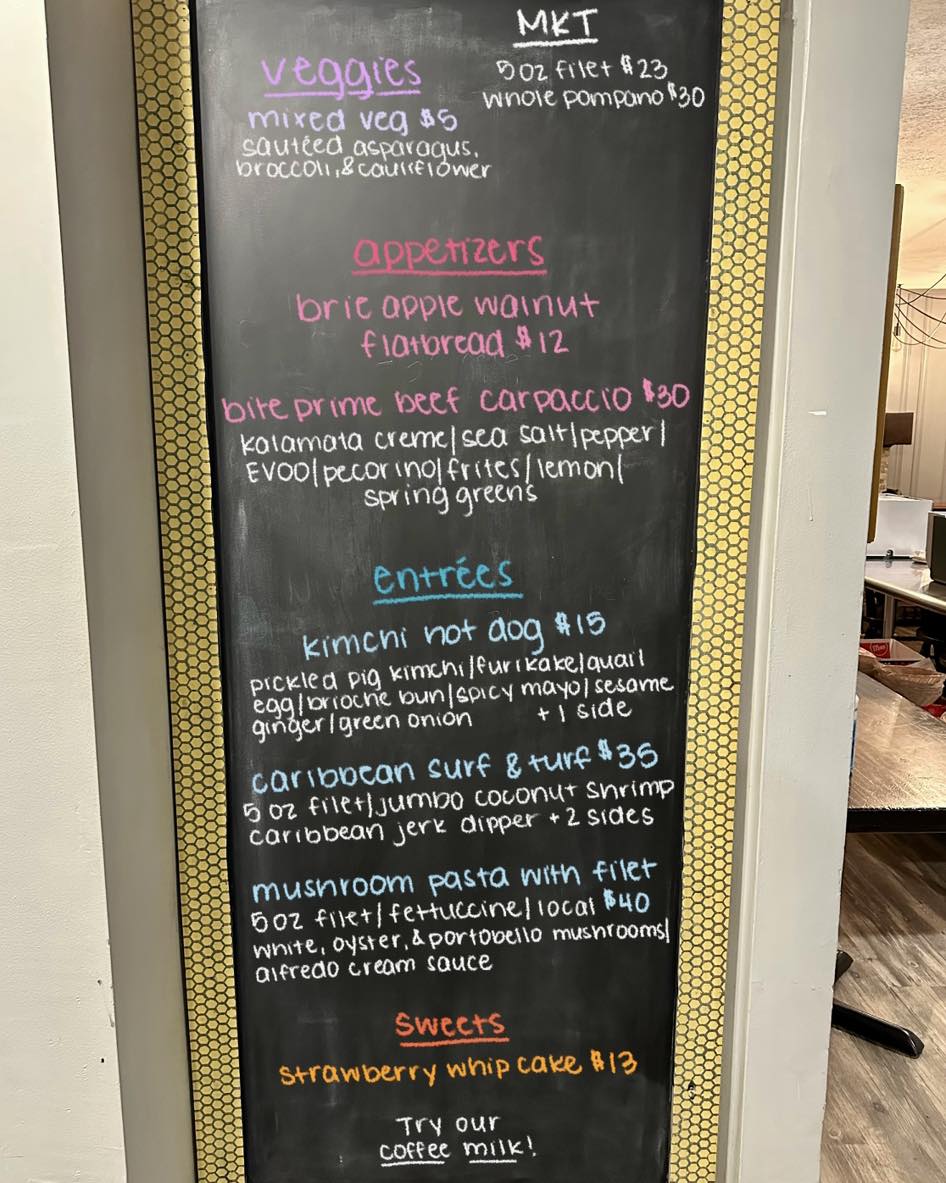 MKT
5 oz filet $23
whole pompano $30
veggies
mixed veg $5
sautéed asparagus,
broccoli, & cauliflower
appetizers
brie apple walnut
flatbread $12
bite prime beef carpaccio $30
kalamata creme/sea salt/pepper/
EVOO/pecorino/frites/lemon/
spring greens
entrées
kimchi hot dog $15
pickled pig kimchi/furikake/quail
egg/brioche bun/spicy mayo/sesame
ginger/green onion +1 side
caribbean surf & turf $35
5 oz filet/jumbo coconut shrimp
caribbean jerk dipper + 2 sides
mushroom pasta with filet
5oz filet/fettuccine/local $40
white, oyster, & portobello mushrooms/
alfredo cream sauce
sweets
strawberry whip cake $13
Try our
coffee milk!